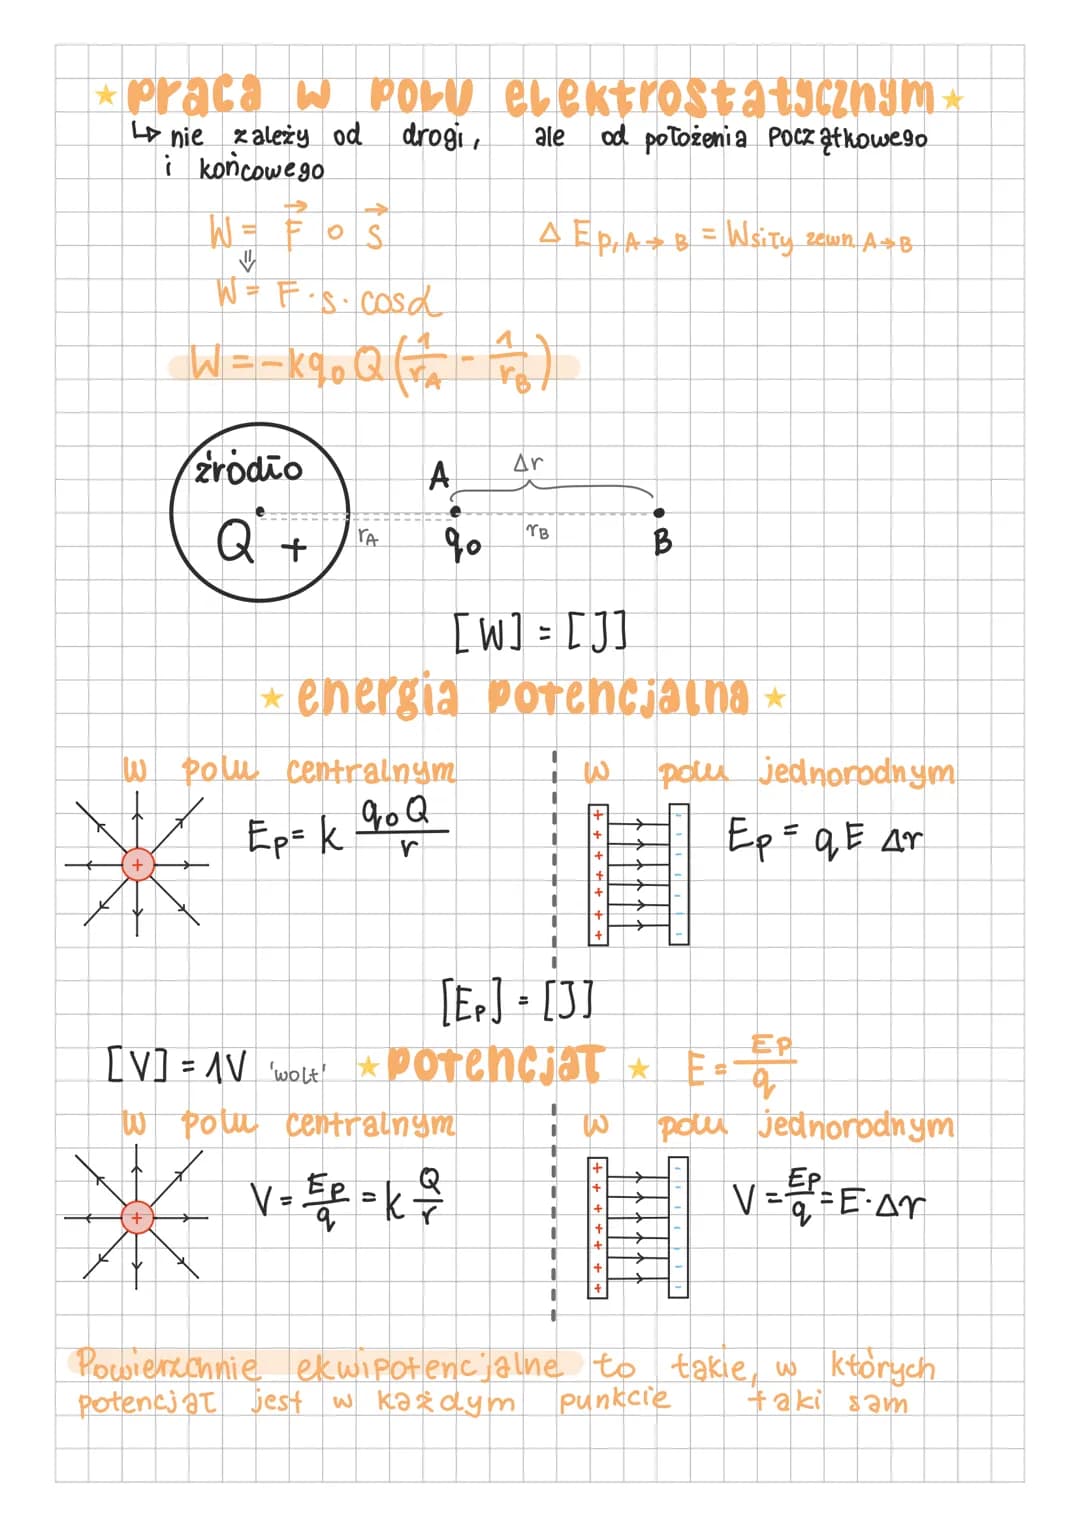 praca w polu elektrostatycznym
↳ nie zależy od drogi, ale od położenia początkowego
i końcowego
W = F⃗ ∘ s⃗
Δ Ep, A→B = Wsiły zewn. A→B
⇓
W = F·s·cosα
W = -kq₀Q(1/rA - 1/rB)
źródło
A
Δr
Q +
rA
q₀
rB
B
[W] = [J]
energia potencjalna
w polu centralnym
w polu jednorodnym
Ep = k q₀Q/r
Ep = qE Δr
[Ep] = [J]
[V] = 1V 'wolt'
potencjał
E = Ep/q
w polu centralnym
w polu jednorodnym
V = Ep/q = k Q/r
V = Ep/q = E·Δr
Powierzchnie ekwipotencjalne to takie, w których
potencjał jest w każdym punkcie taki sam